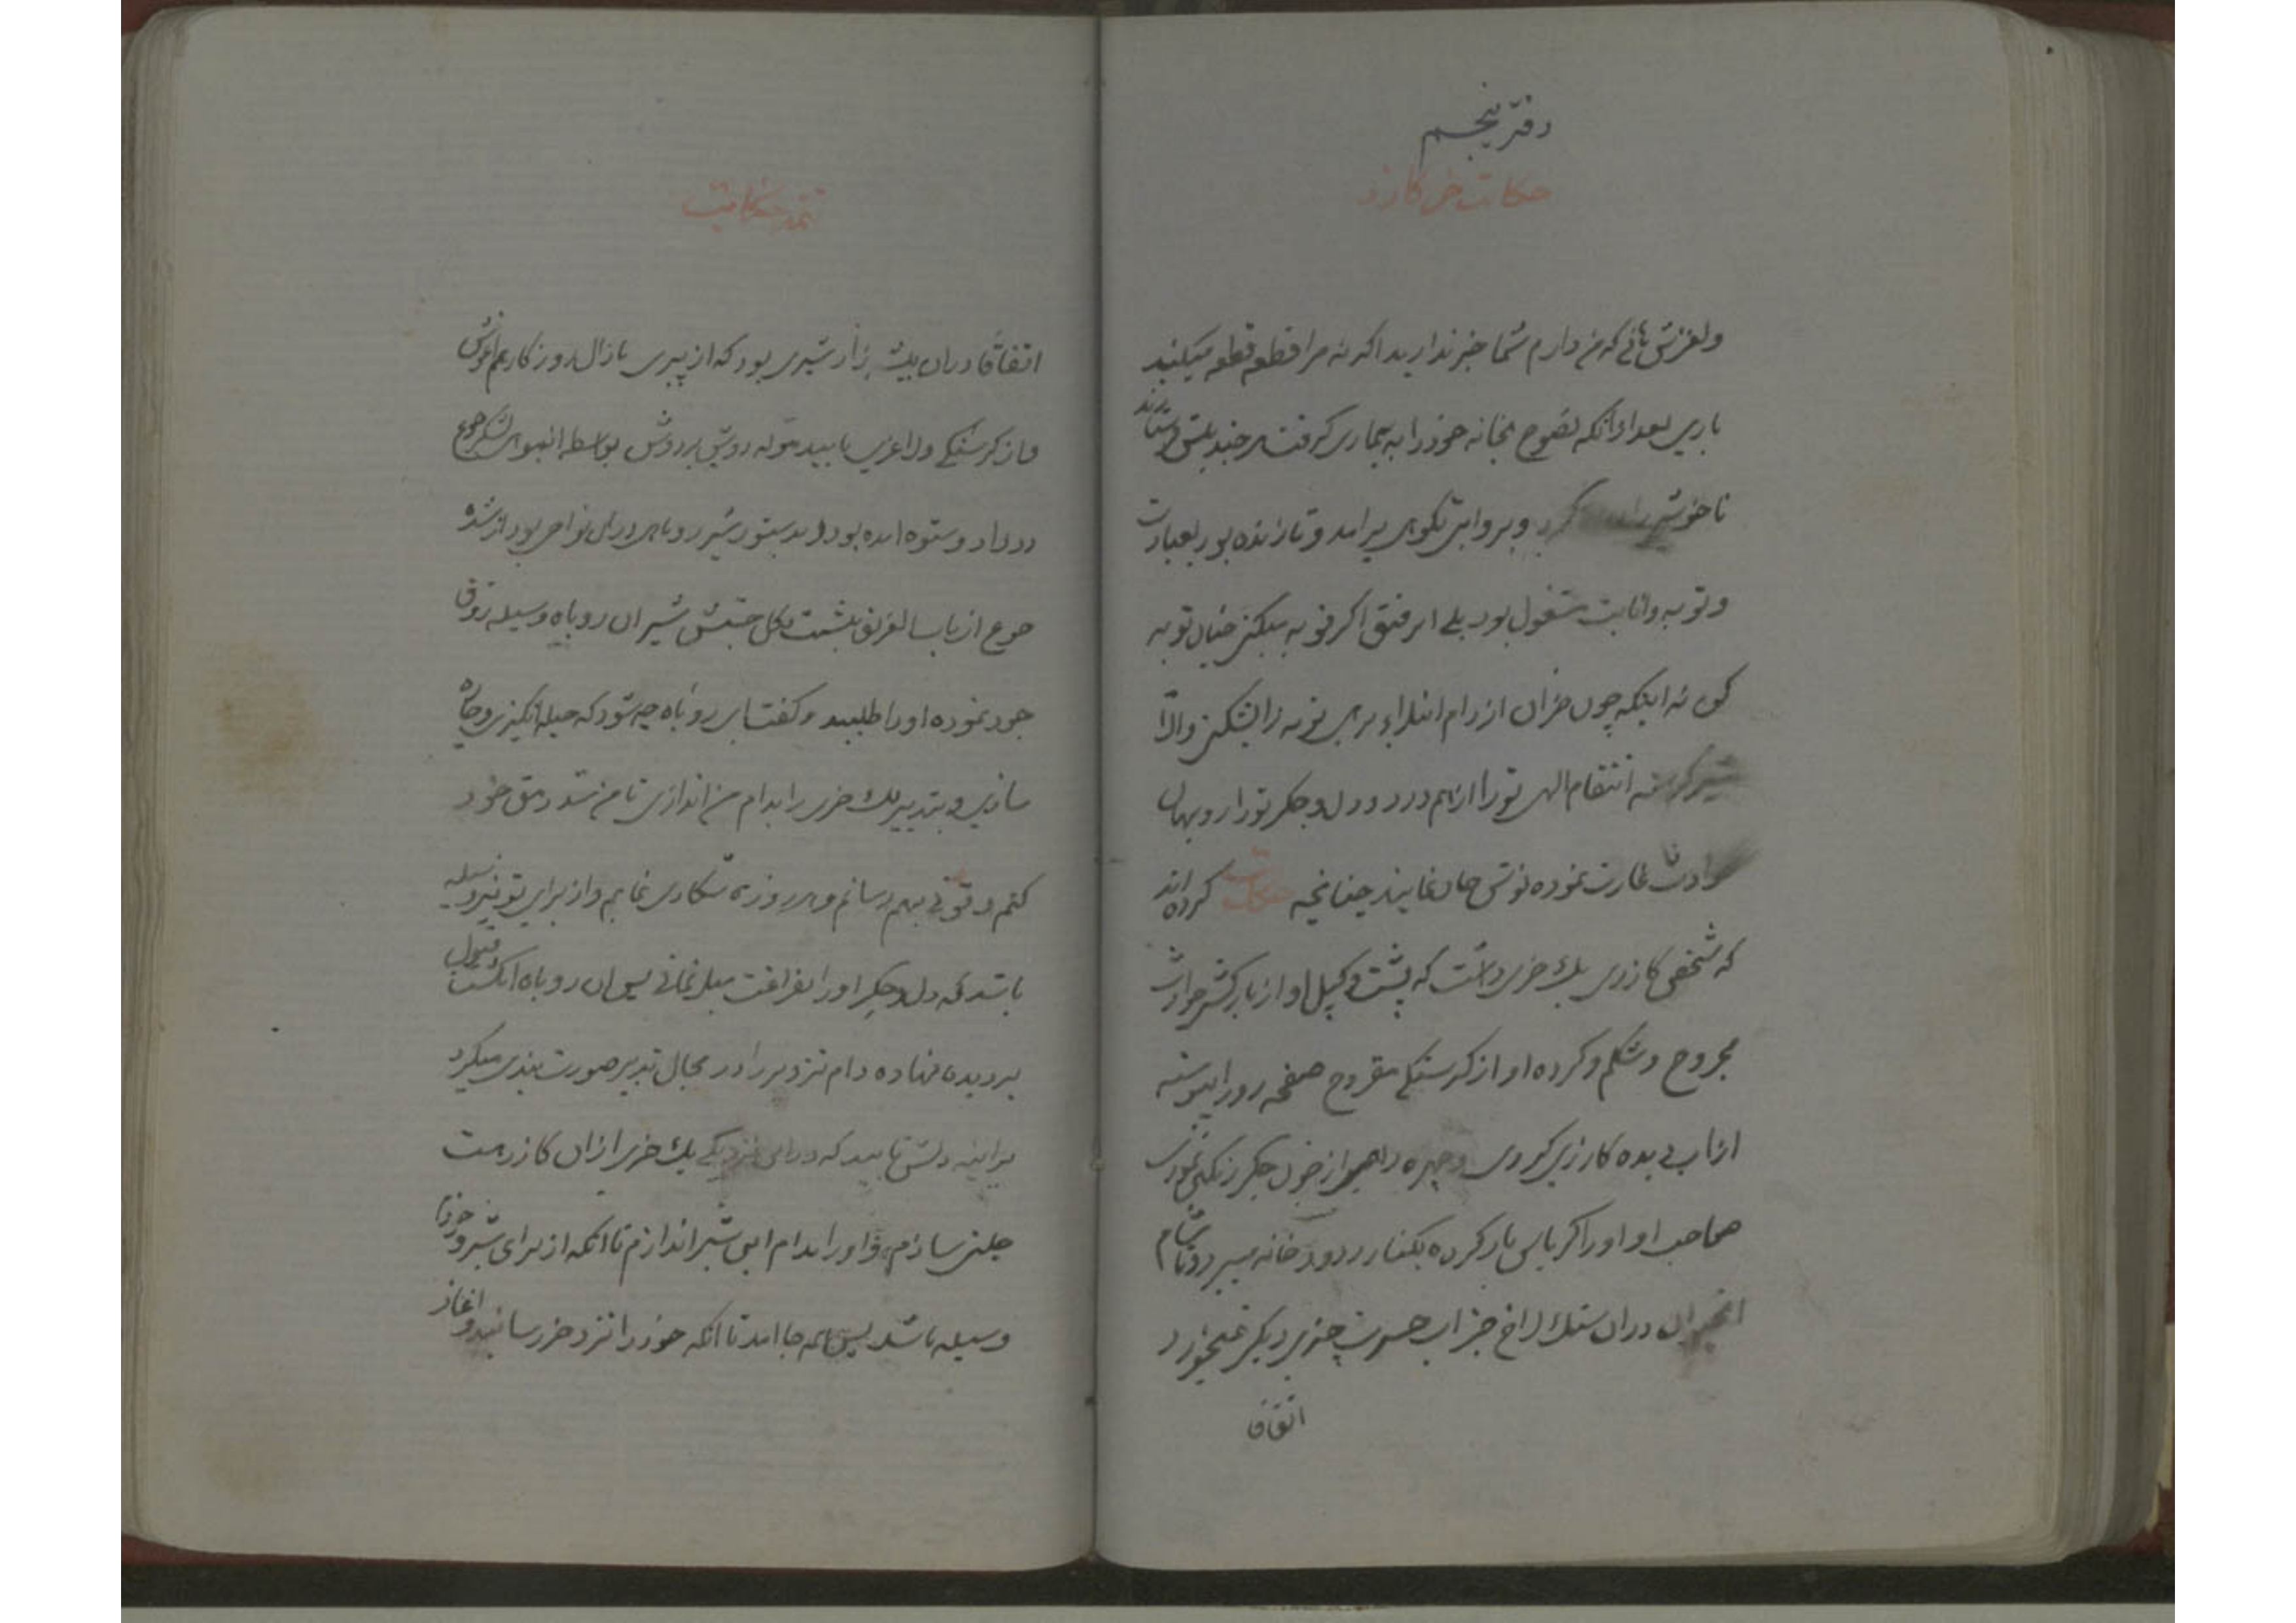 دفتر پنجم
حکایت خر کازر
ولغزش هائی که من دارم شما خبر ندارید اکرنه مرا قطعه قطعه میکنید
باری بعد از انکه نصوح بخانه خود را به بیماری کرفت هر چند
ناخوشی را کرد و بر وا بتوی برآمد و تا زنده بود بعبادت
و توبه و انابت مشغول بود بلی ای رفیق اکر توبه میکنی چنان توبه
کن نه اینکه چون خران از دام ابتلا برهی توبه را بشکنی والا
شیر کرسنه انتقام الهی تو را از هم درد و دل و جکر تو را روبهان
حوادث غارت نموده نوش جان نمایند چنانچه حکایت کرده اند
که شخصی کازری یک خری داشت که پشت و کپل او از بار کش حوادث
مجروح و شکم و کرده او از کرسنکی مقروح صفحه رو را پیوسته
از اب دیده کازری کردی و چهره را از خون جکر رنکین نمودی
صاحب او او را کرباس بار کرده بکنار رودخانه میبرد و تا شام
ان حیوان دران سنکلاخ جز اب حسرت چیزی دیکر نمیخورد
اتفاقا
تتمه حکایت
اتفاقا دران بیشه زار شیری بود که از پیری با زال روزکار هم اغوش
و از کرسنکی ولاغری روش بر دوش بواسطه انبوهی لشکر جوع
در داد و ستوه امده بود و بدستور شیر روباهی دران نواحی بود از شده
جوع از پا سالغزیق بشت کل جنبش شیر ان روباه وسیله رزق
خود نموده او را طلبید و کفت ای روباه چه شود که حیله انکیزی و چاره
سازی و بتدبیر یک خری را بدام من اندازی تا من سد رمق خود
کنم و قوتی بهم رسانم و هر روزه شکاری نمایم و از برای تو نیز وسیله
باشد که دل و جکر او را بفراغت میل نمائی پس ان روباه انکشت قبول
بر دیده نهاده دام تزویر را در مجال تدبیر صورت بندی میکرد
برایینه دلش تابید که دراین نزدیکی یک خری ازان کازر هست
حیلتی سازم و او را بدام این شیر اندازم تا انکه از برای شیر و خود را
وسیله باشد پس همه جا امد تا انکه خود را نزد خر رسانید و اغاز